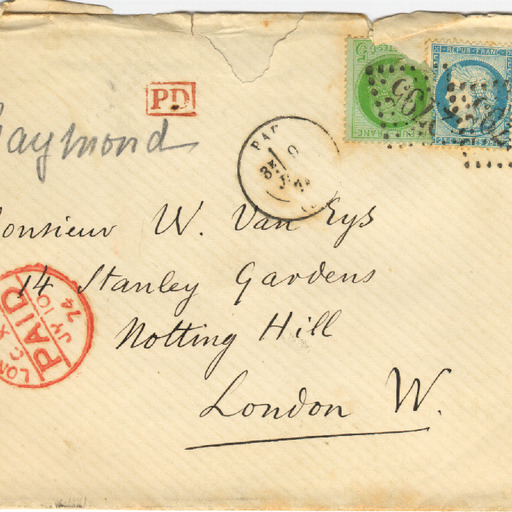 PD
Raymond
Monsieur W. Van Eys
14 Stanley Gardens
Notting Hill
London W.
REPUB · FRANC
LON
PAID
JY 10
74